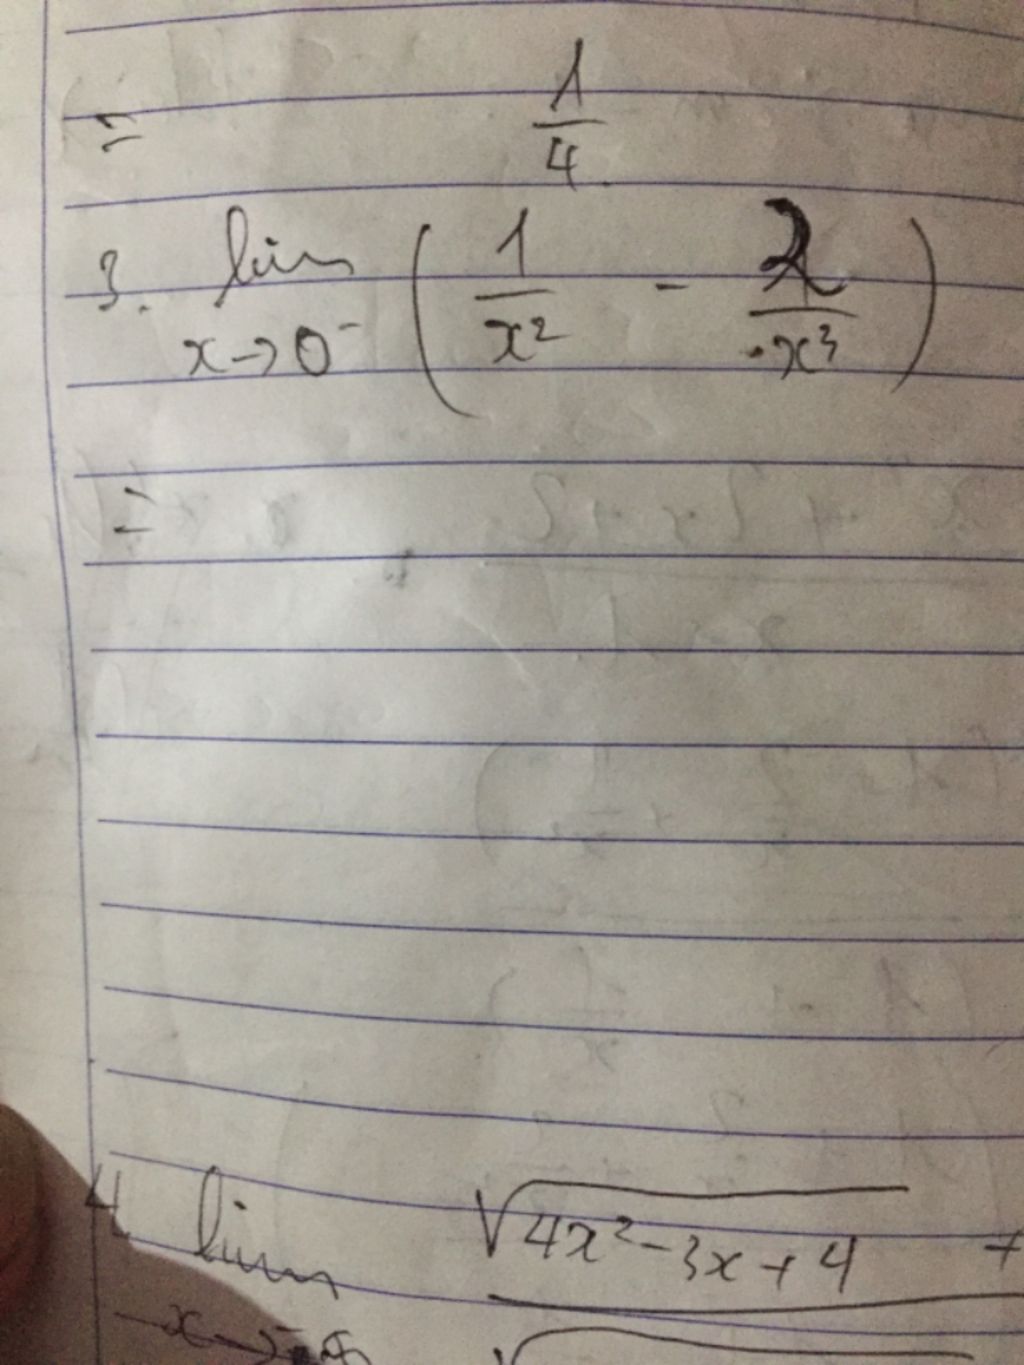 = 1/4
3. lim x→0⁻ (1/x² - 2/x³)
=
4. lim √(4x²-3x+4) +
x→